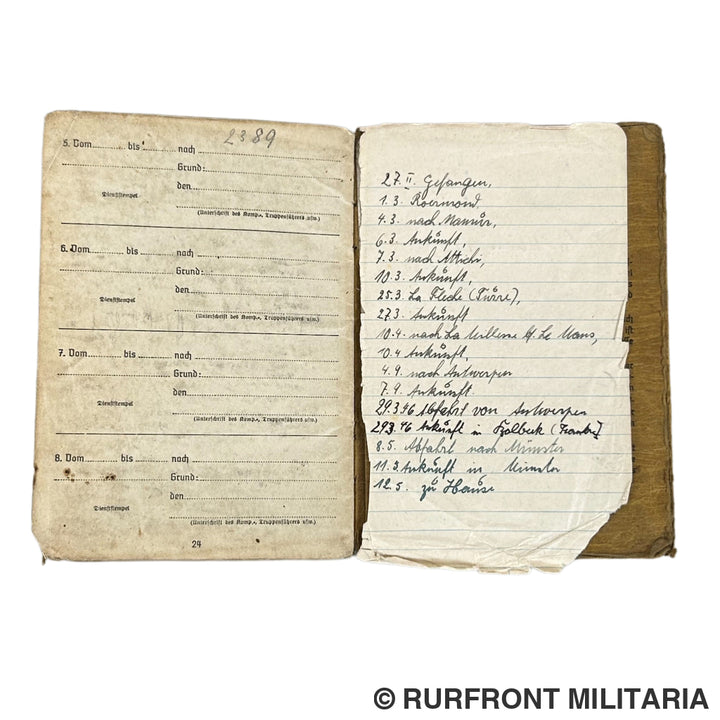 2389
5. Vom bis nach
Grund:
den
Dienststempel
(Unterschrift des Komp.-, Truppenführers usw.)
6. Vom bis nach
Grund:
den
Dienststempel
(Unterschrift des Komp.-, Truppenführers usw.)
7. Vom bis nach
Grund:
den
Dienststempel
(Unterschrift des Komp.-, Truppenführers usw.)
8. Vom bis nach
Grund:
den
Dienststempel
(Unterschrift des Komp.-, Truppenführers usw.)
24
27. II. Gefangen,
1.3. Roermond
4.3. nach Namür,
6.3. Ankunft,
7.3. nach Attichi,
10.3. Ankunft,
25.3. La Fleche (Türre),
27.3. Ankunft
10.4. nach La Millesse Le Mans,
10.4 Ankunft,
4.9. nach Antwerpen
7.9. Ankunft
29.3.46 Abfahrt von Antwerpen
29.3.46 Ankunft in
8.5. Abfahrt nach Münster
11.5. Ankunft in Münster
12.5. zu Hause
© RURFRONT MILITARIA